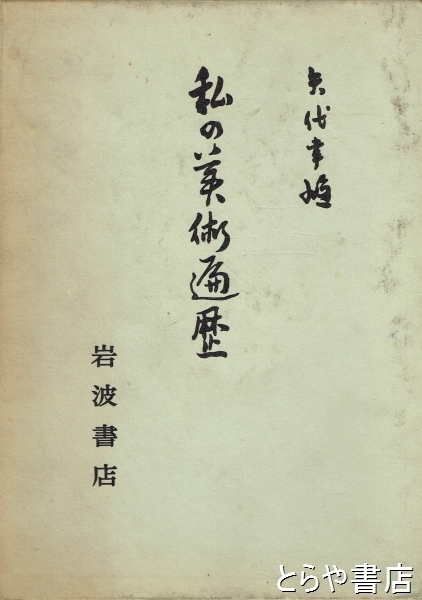 矢代幸雄
私の美術遍歴
岩波書店
とらや書店